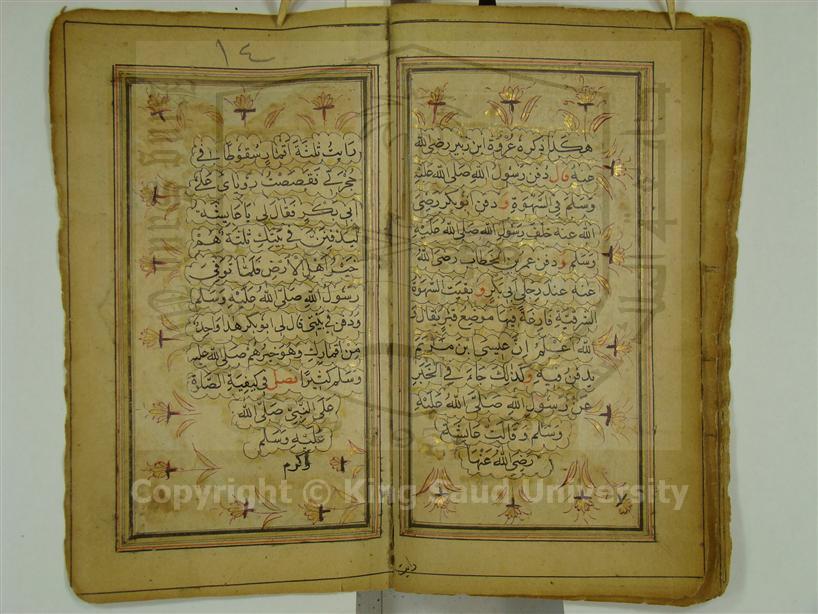 هكذا ذكره عروة ابن زبير رضي الله
عنه قال دفن رسول الله صلى الله عليه
وسلم في السهوة ودفن ابو بكر رضي
الله عنه خلف رسول الله صلى الله عليه
وسلم ودفن عمر بن الخطاب رضي الله
عنه عند رجلي ابي بكر وبقيت السهوة
الشرقية فارغة فيها موضع قبر يقال
الله اعلم ان عيسى بن مريم
يدفن فيه وكذلك جاء في الخبر
عن رسول الله صلى الله عليه
وسلم وقالت عايشة
رضي الله عنها
رايت
١٤
رايت ثلثة اقمار سقوطا في
حجرتي فقصصت رؤياي على
ابي بكر فقال لي يا عايشة
ليدفنن في بيتك ثلثة هم
خير اهل الارض فلما توفي
رسول الله صلى الله عليه وسلم
ودفن في بيتي قال لي ابو بكر هذا واحد
من اقمارك وهو خيرهم صلى الله عليه
وسلم كثيرا فصل في كيفية الصلاة
على النبي صلى الله
عليه وسلم
واكرم
Copyright © King Saud University